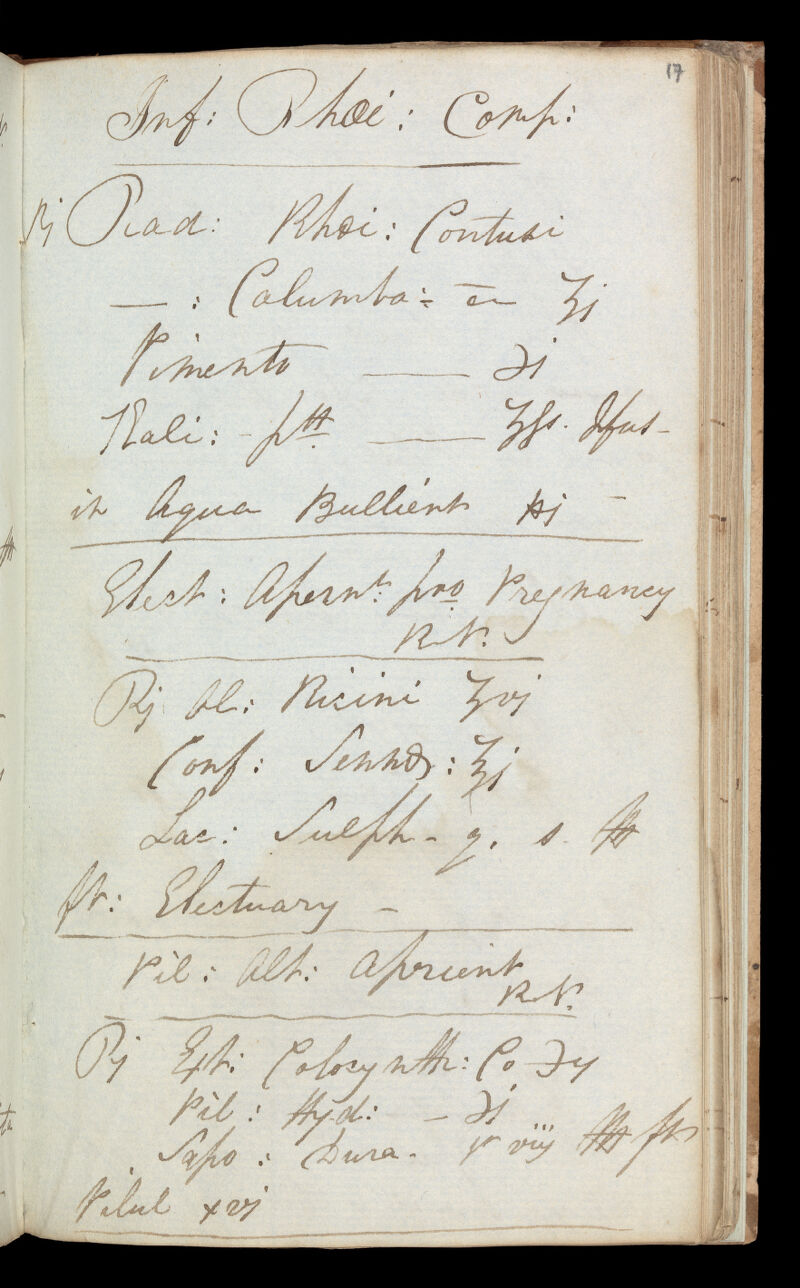 17
Inf: Rhœi: Comp:
℞ Rad: Rhœi: Contusi
— : Calumba: āā ʒj
Pimento —— ℈j
Kali: ptt —— ʒſs. Infus-
in Aqua Bullient ℔j -
Elect: Apernt: pro Pregnancy
R.N.
℞ Ol: Ricini ʒvj
Conf: Sennæ: ℥j
Lac: Sulph - q. s.
ft: Electuary -
Pil: Alt: Aperient
R.N.
℞ Ext: Colocynth: Co ℈ij
Pil: Hyd: - ℈j
Sapo: Dura. gr viij ft
Pilul xvj